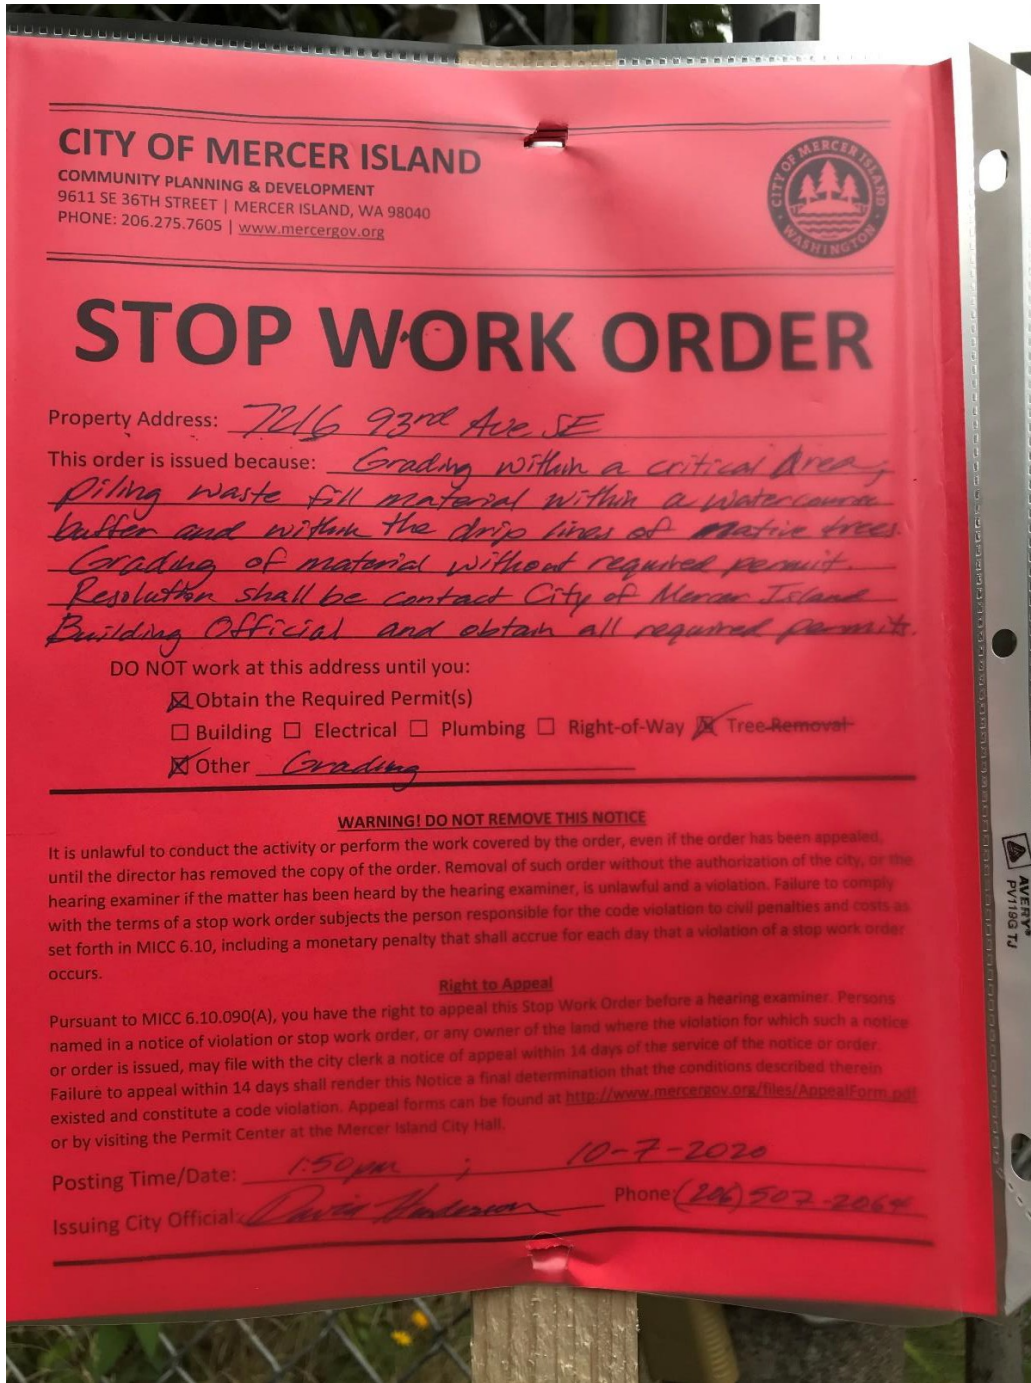 CITY OF MERCER ISLAND
COMMUNITY PLANNING & DEVELOPMENT
9611 SE 36TH STREET | MERCER ISLAND, WA 98040
PHONE: 206.275.7605 | www.mercergov.org
CITY OF MERCER ISLAND
WASHINGTON
STOP WORK ORDER
Property Address: 7216 93rd Ave. SE
This order is issued because: Grading within a critical Area,
piling waste fill material within a watercourse
buffer and within the drip lines of native trees.
Grading of material without required permit.
Resolution shall be contact City of Mercer Island
Building Official and obtain all required permits.
DO NOT work at this address until you:
☒ Obtain the Required Permit(s)
☐ Building ☐ Electrical ☐ Plumbing ☐ Right-of-Way ☒ Tree Removal
☒ Other Grading
WARNING! DO NOT REMOVE THIS NOTICE
It is unlawful to conduct the activity or perform the work covered by the order, even if the order has been appealed,
until the director has removed the copy of the order. Removal of such order without the authorization of the city, or the
hearing examiner if the matter has been heard by the hearing examiner, is unlawful and a violation. Failure to comply
with the terms of a stop work order subjects the person responsible for the code violation to civil penalties and costs as
set forth in MICC 6.10, including a monetary penalty that shall accrue for each day that a violation of a stop work order
occurs.
Right to Appeal
Pursuant to MICC 6.10.090(A), you have the right to appeal this Stop Work Order before a hearing examiner. Persons
named in a notice of violation or stop work order, or any owner of the land where the violation for which such a notice
or order is issued, may file with the city clerk a notice of appeal within 14 days of the service of the notice or order.
Failure to appeal within 14 days shall render this Notice a final determination that the conditions described therein
existed and constitute a code violation. Appeal forms can be found at http://www.mercergov.org/files/AppealForm.pdf
or by visiting the Permit Center at the Mercer Island City Hall.
Posting Time/Date: 1:50pm ; 10-7-2020
Issuing City Official: Henderson Phone: (206) 507-2064
AVERY®
PV119G TJ